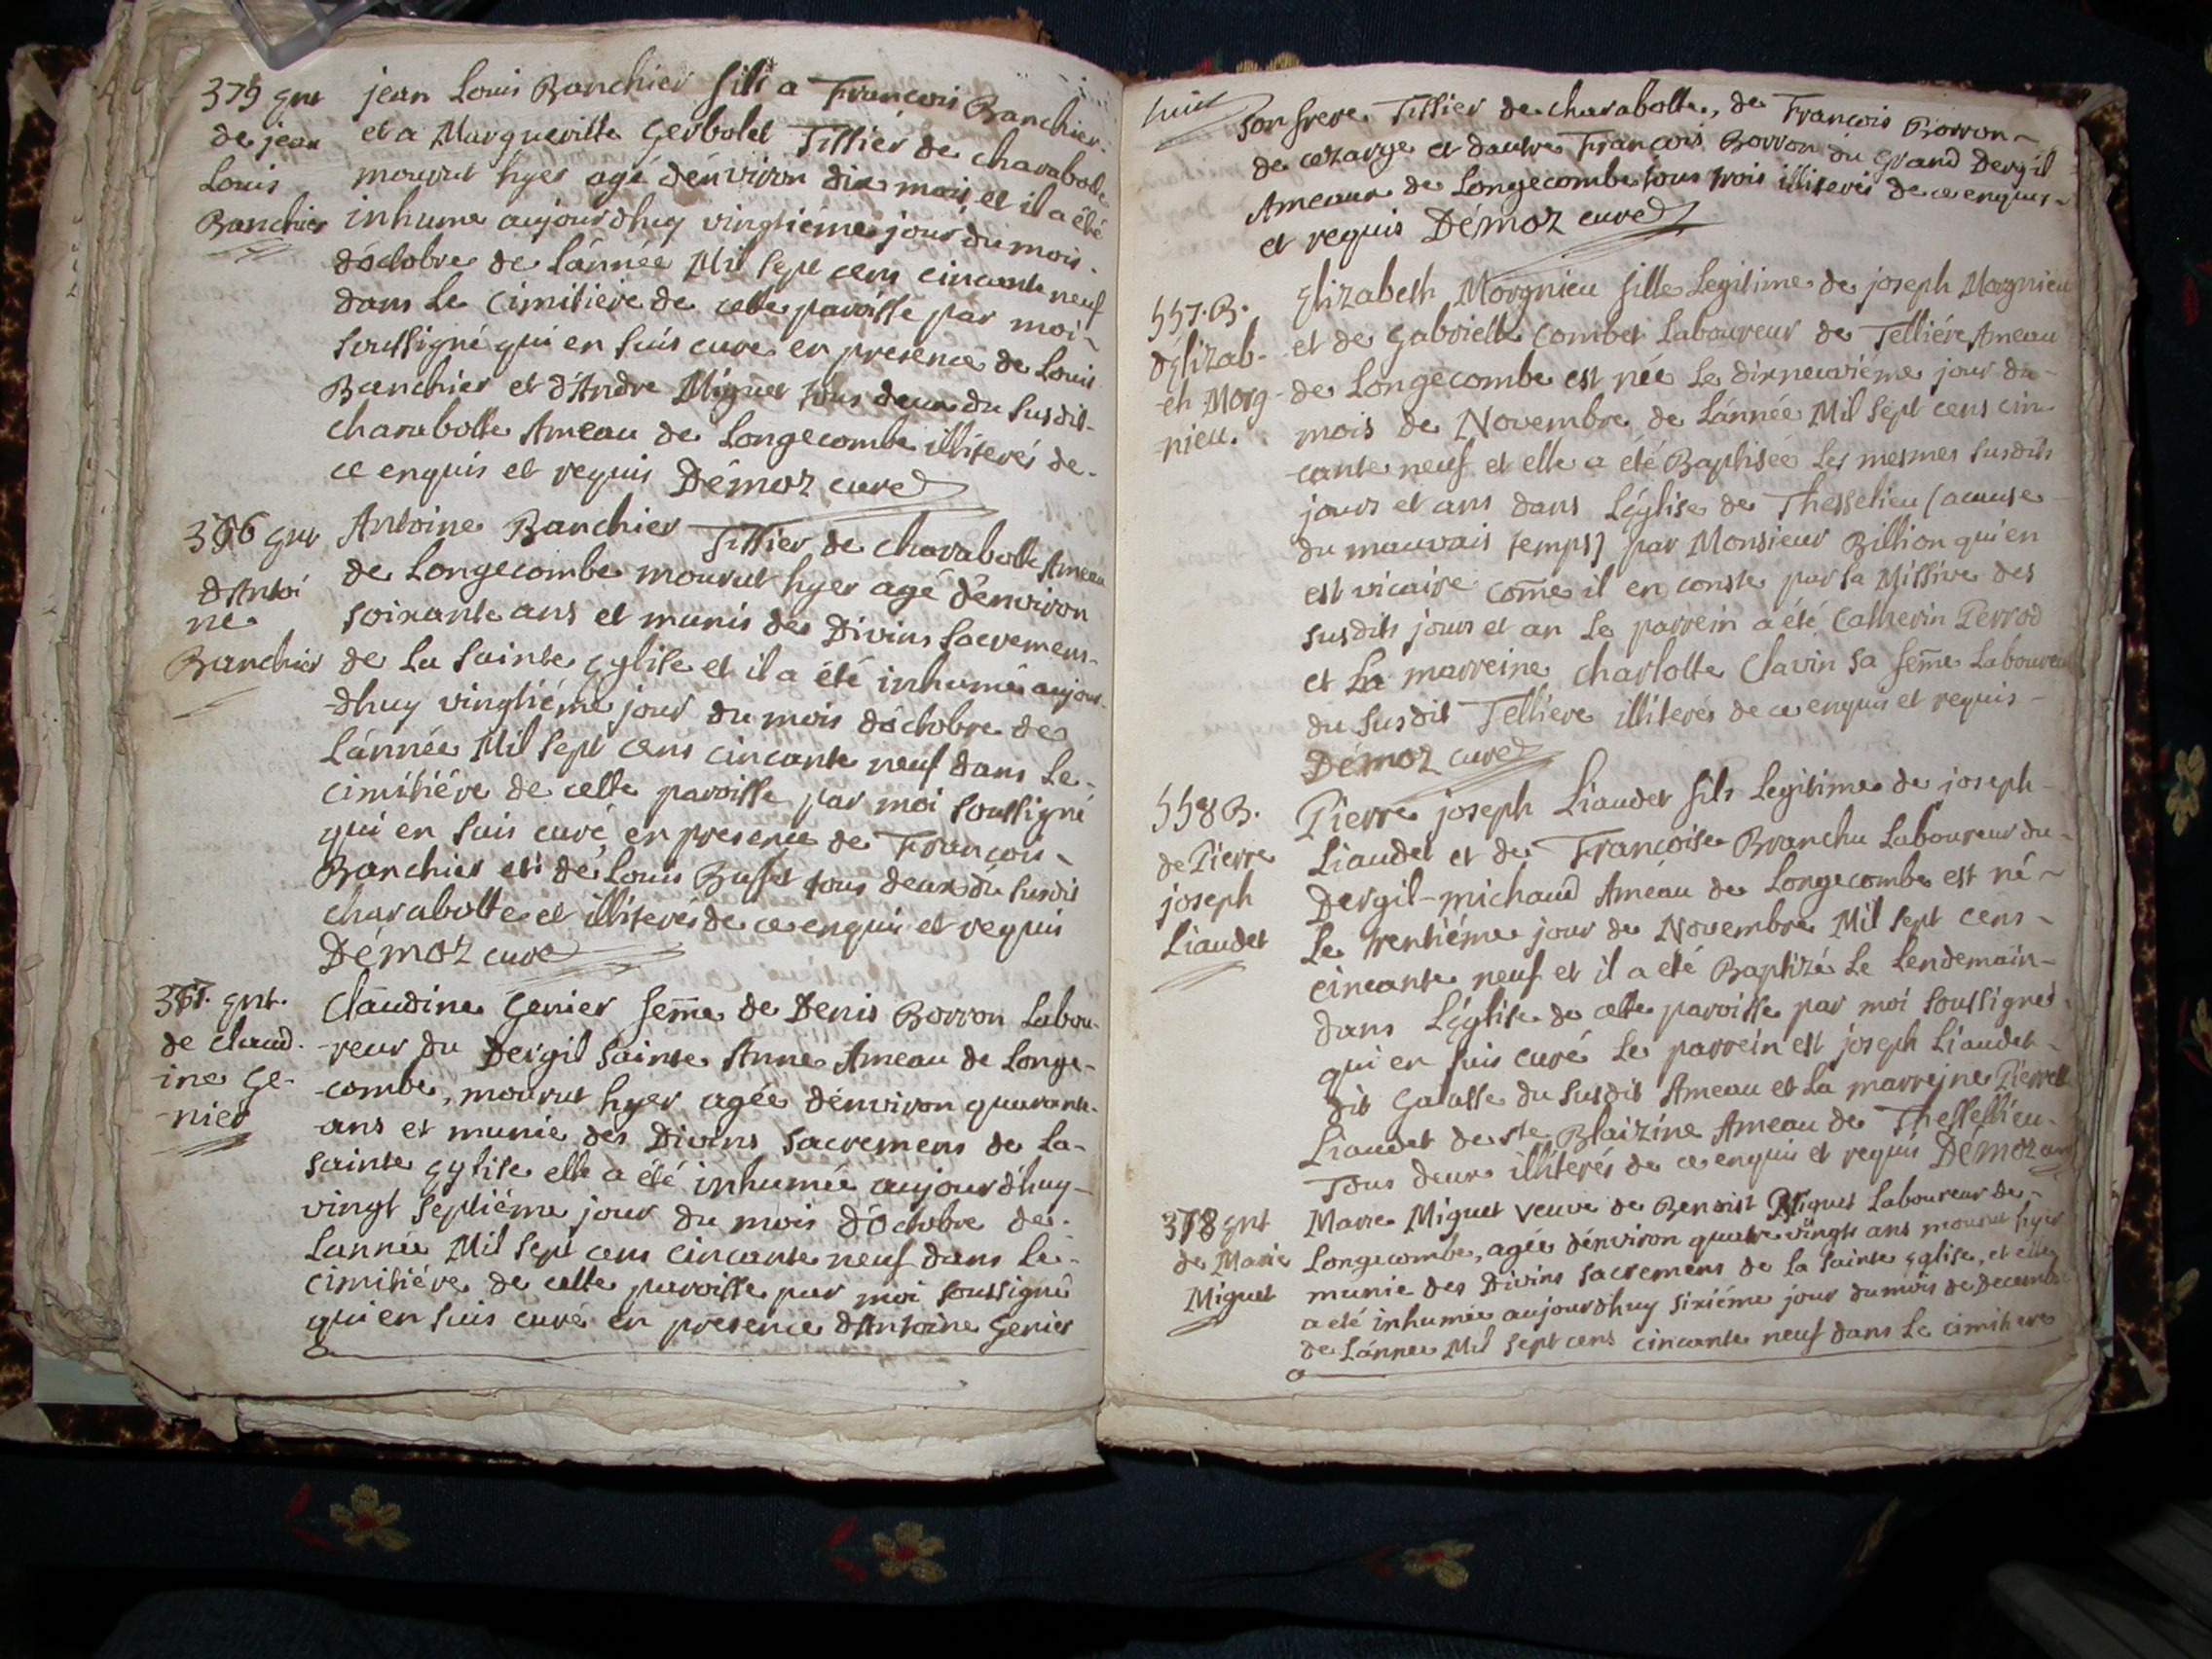 379 gnt
de jean
Louis
Banchier
jean Louis Banchier fils a Francois Banchier
et a Margueritte Gerbolet Tissier de charabotte
mourut hyer agé dénviron dix mois et il a été
inhume aujourdhuy vingtiéme jour du mois
dóctobre de Lánnée Mil sept cens cincante neuf
dans Le cimitiere de cette paroisse par moi
soussigné qui en suis curé en presence de Louis
Banchier et d'Andre Miguet tous deux du susdit
charabotte Ameau de Longecombe illiterés de
ce enquis et requis Démoz curé
366 gnt
dAntoi
ne
Banchier
Antoine Banchier Tissier de charabotte Ameau
de Longecombe mourut hyer agé dénviron
soixante ans et munis des Divins Sacremens
de La Sainte Eglise et il a été inhumé aujour
-dhuy vingtiéme jour du mois dóctobre de
Lánnée Mil sept cens cincante neuf dans Le
cimitiére de cette paroisse par moi soussigné
qui en suis curé en presence de Francois
Banchier et de Louis Busset tous deux du susdit
charabotte et illiterés de ce enquis et requis
Démoz curé
367. gnt.
de claud-
-ine Ge-
-nier
Claudine Genier feme de Denis Borron Labou-
-reur du Dergil Sainte Anne Ameau de Longe-
-combe, mourut hyer agée dénviron quarante
ans et munie des Divins Sacremens de La
Sainte Eglise elle a été inhumée aujourdhuy
vingt septiéme jour du mois dóctobre de
Lannée Mil sept cens cincante neuf dans Le
cimitiére de cette paroisse par moi soussigné
qui en suis curé en presence dAntoine Genier
son frere Tissier de charabotte, de Francois Borron
de cezarge et dautre Francois Borron du Grand Dergil
Ameaux de Longecombe tous trois illiterés de ce enquis
et requis Démoz curé
557. B.
dElizab-
-eth Morg-
-nieu.
Elizabeth Morgnieu fille Legitime de joseph Morgnieu
et de Gabrielle Combet Laboureur de Telliére Ameau
de Longecombe est née Le dixneuviéme jour du
mois de Novembre de Lánnée Mil sept cens cin
-cante neuf et elle a été Baptisée Les mesmes susdits
jours et ans dans Léglise de Thesselieu (acause
du mauvais temps) par Monsieur Billion qui en
est vicaire come il en conste par sa Missive des
susdits jours et an Le parrein a été Catherin Perrod
et La marreine charlotte Clavin sa feme Laboureur
du susdit Telliere illiterés de ce enquis et requis
Démoz curé
558 B.
de Pierre
joseph
Liaudet
Pierre joseph Liaudet fils Legitime de joseph
Liaudet et de Francoise Branchu Laboureur du
Dergil-michaud Ameau de Longecombe est né
Le trentiéme jour de Novembre Mil sept cens
cincante neuf et il a été Baptizé Le Lendemain
dans Léglise de cette paroisse par moi soussigné
qui en suis curé Le parrein est joseph Liaudet
dit Galasse du susdit Ameau et La marrejne Pierrette
Liaudet de ste Blaizine Ameau de Thessellieu
Tous deux illiterés de ce enquis et requis Démoz curé
378 gnt
de Marie
Miguet
Marie Miguet veuve de Benoist Miguet Laboureur de
Longecombe, agée dénviron quatre vingts ans mourut hyer
munie des Divins sacremens de La Sainte Eglise, et elle
a été inhumée aujourdhuy sixiéme jour du mois de Decembre
de Lánnée Mil sept cens cincante neuf dans Le cimitiere